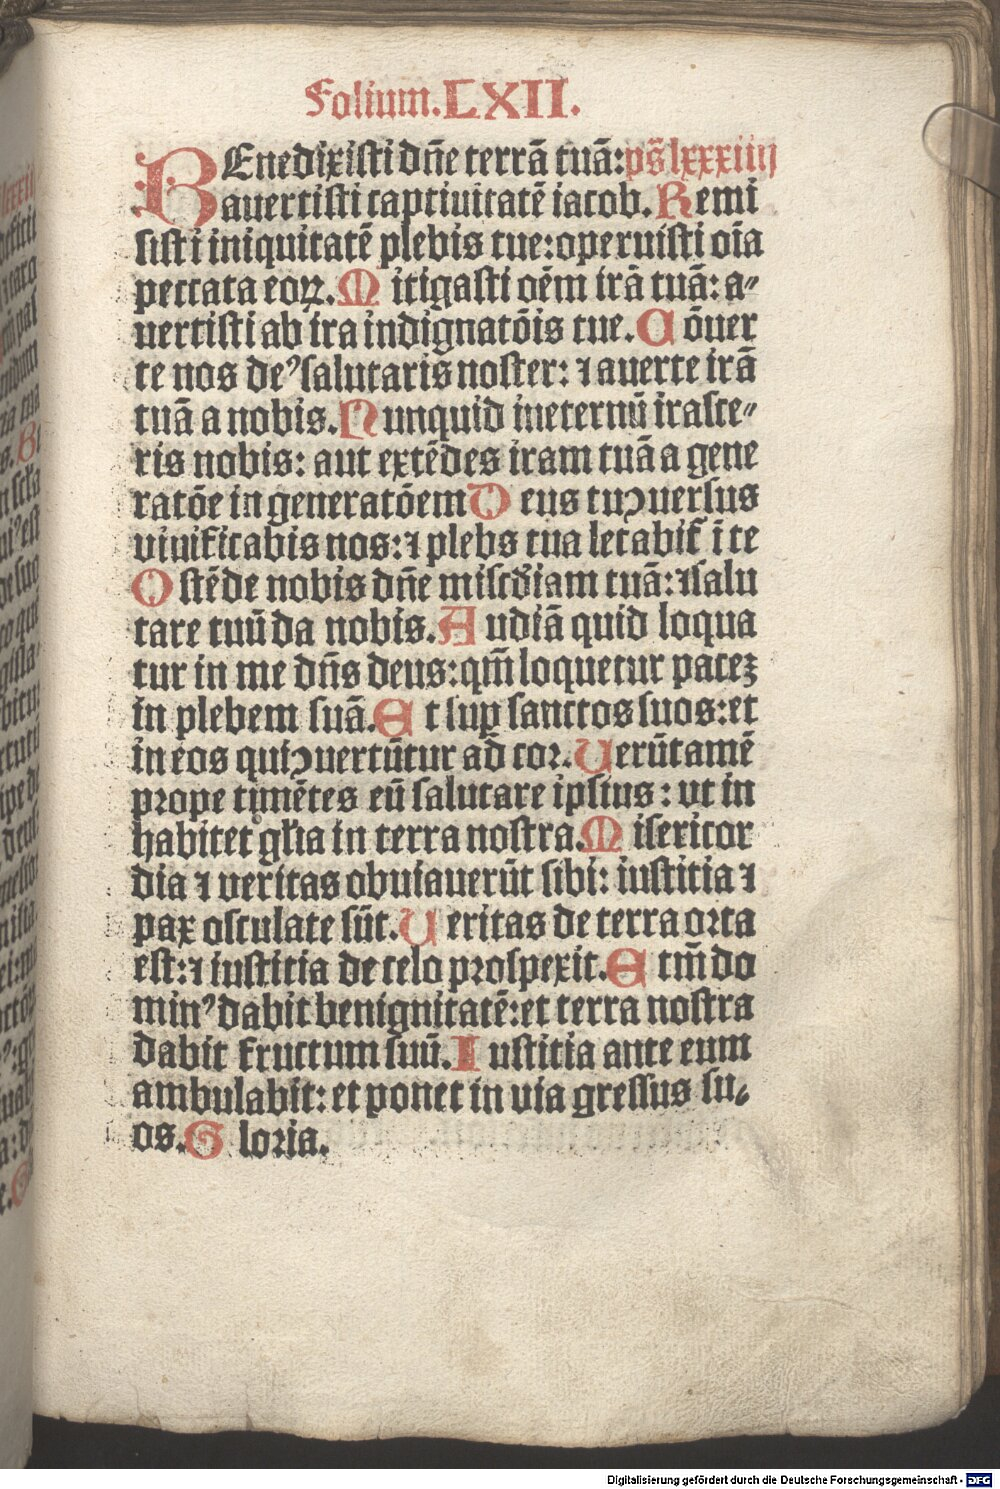 Folium.LXII.
BEnedixisti dñe terrã tuã:ps̃ lxxxiiij
auertisti captiuitatẽ iacob. Remi
sisti iniquitatẽ plebis tue:operuisti oĩa
peccata eoꝝ. Mitigasti oẽm irã tuã: a⸗
uertisti ab ira indignatõis tue. Cõuer
te nos deꝰ salutaris noster: ⁊ auerte irã
tuã a nobis. Nunquid ineternũ irasce⸗
ris nobis: aut extẽdes iram tuã a gene
ratõe in generatõem Deus tu ↄuersus
viuificabis nos: ⁊ plebs tua letabit᷑ ĩ te
Ostẽde nobis dñe misc̃diam tuã: ⁊ salu
tare tuũ da nobis. Audiã quid loqua
tur in me dñs deus: qm̃ loquetur paceꝫ
in plebem suã. Et suꝑ sanctos suos: et
in eos qui ↄuertũtur ad cor. Uerũtamẽ
prope timẽtes eũ salutare ipsius: vt in
habitet gl̃ia in terra nostra. Misericor
dia ⁊ veritas obuiauerũt sibi: iustitia ⁊
pax osculate sũt. Ueritas de terra orta
est: ⁊ iustitia de celo prospexit. Etm̃ do
minꝰ dabit benignitatẽ: et terra nostra
dabit fructum suũ. Iustitia ante eum
ambulabit: et ponet in via gressus su⸗
os. Gloria.
Digitalisierung gefördert durch die Deutsche Forschungsgemeinschaft - DFG